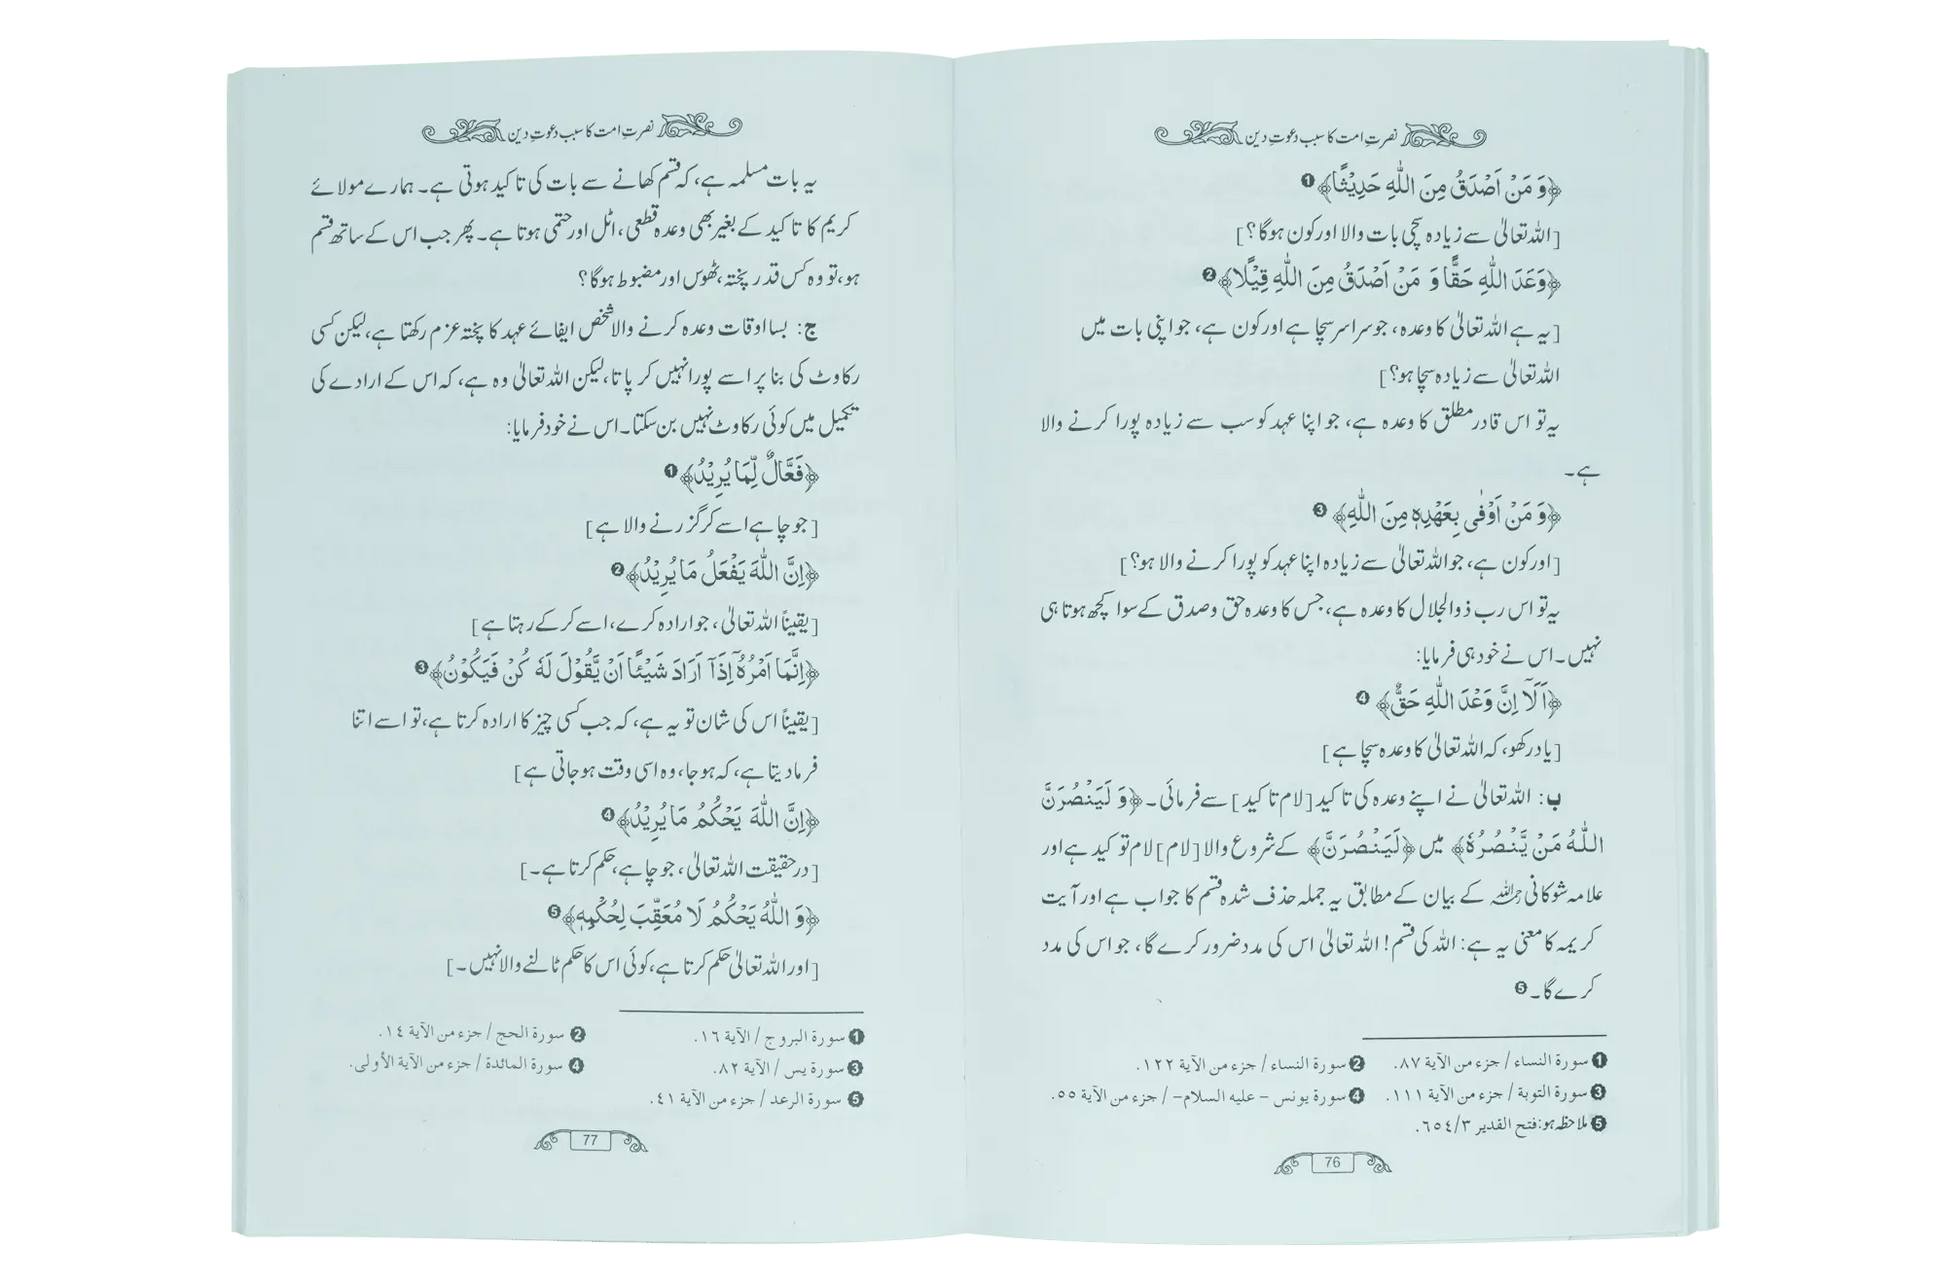 نصرتِ امت کا سبب دعوتِ دین
﴿وَ مَنْ اَصْدَقُ مِنَ اللّٰهِ حَدِيْثًا﴾ ❶
[اللہ تعالیٰ سے زیادہ سچی بات والا اور کون ہوگا؟]
﴿وَعْدَ اللّٰهِ حَقًّا وَ مَنْ اَصْدَقُ مِنَ اللّٰهِ قِيْلًا﴾ ❷
[یہ ہے اللہ تعالیٰ کا وعدہ، جو سراسر سچا ہے اور کون ہے، جو اپنی بات میں
اللہ تعالیٰ سے زیادہ سچا ہو؟]
یہ تو اس قادر مطلق کا وعدہ ہے، جو اپنا عہد کو سب سے زیادہ پورا کرنے والا
ہے۔
﴿وَ مَنْ اَوْفٰى بِعَهْدِهٖ مِنَ اللّٰهِ﴾ ❸
[اور کون ہے، جو اللہ تعالیٰ سے زیادہ اپنا عہد کو پورا کرنے والا ہو؟]
یہ تو اس رب ذوالجلال کا وعدہ ہے، جس کا وعدہ حق و صدق کے سوا کچھ ہوتا ہی
نہیں۔ اس نے خود ہی فرمایا:
﴿اَلَآ اِنَّ وَعْدَ اللّٰهِ حَقٌّ﴾ ❹
[یاد رکھو، کہ اللہ تعالیٰ کا وعدہ سچا ہے]
ب: اللہ تعالیٰ نے اپنے وعدہ کی تاکید [لام تاکید] سے فرمائی۔ ﴿وَ لَيَنْصُرَنَّ
اللّٰهُ مَنْ يَّنْصُرُهٗ﴾ میں ﴿لَيَنْصُرَنَّ﴾ کے شروع والا [لام] لام توکید ہے اور
علامہ شوکانی رحمہ اللہ کے بیان کے مطابق یہ جملہ حذف شدہ قسم کا جواب ہے اور آیت
کریمہ کا معنی یہ ہے: اللہ کی قسم! اللہ تعالیٰ اس کی مدد ضرور کرے گا، جو اس کی مدد
کرے گا۔ ❺
❶ سورة النساء / جزء من الآية ٨٧.
❷ سورة النساء / جزء من الآية ١٢٢.
❸ سورة التوبة / جزء من الآية ١١١.
❹ سورة يونس – عليه السلام– / جزء من الآية ٥٥.
❺ ملاحظہ ہو: فتح القدير ٦٥٤/٣.
76
نصرتِ امت کا سبب دعوتِ دین
یہ بات مسلمہ ہے، کہ قسم کھانے سے بات کی تاکید ہوتی ہے۔ ہمارے مولائے
کریم کا تاکید کے بغیر بھی وعدہ قطعی، اٹل اور حتمی ہوتا ہے۔ پھر جب اس کے ساتھ قسم
ہو، تو وہ کس قدر پختہ، ٹھوس اور مضبوط ہوگا؟
ج: بسا اوقات وعدہ کرنے والا شخص ایفائے عہد کا پختہ عزم رکھتا ہے، لیکن کسی
رکاوٹ کی بنا پر اسے پورا نہیں کر پاتا، لیکن اللہ تعالیٰ وہ ہے، کہ اس کے ارادے کی
تکمیل میں کوئی رکاوٹ نہیں بن سکتا۔ اس نے خود فرمایا:
﴿فَعَّالٌ لِّمَا يُرِيْدُ﴾ ❶
[جو چاہے اسے کر گزرنے والا ہے]
﴿اِنَّ اللّٰهَ يَفْعَلُ مَا يُرِيْدُ﴾ ❷
[یقیناً اللہ تعالیٰ، جو ارادہ کرے، اسے کر کے رہتا ہے]
﴿اِنَّمَا اَمْرُهٗٓ اِذَآ اَرَادَ شَيْئًا اَنْ يَّقُوْلَ لَهٗ كُنْ فَيَكُوْنُ﴾ ❸
[یقیناً اس کی شان تو یہ ہے، کہ جب کسی چیز کا ارادہ کرتا ہے، تو اسے اتنا
فرما دیتا ہے، کہ ہو جا، وہ اسی وقت ہو جاتی ہے]
﴿اِنَّ اللّٰهَ يَحْكُمُ مَا يُرِيْدُ﴾ ❹
[در حقیقت اللہ تعالیٰ، جو چاہے، حکم کرتا ہے۔]
﴿وَ اللّٰهُ يَحْكُمُ لَا مُعَقِّبَ لِحُكْمِهٖ﴾ ❺
[اور اللہ تعالیٰ حکم کرتا ہے، کوئی اس کا حکم ٹالنے والا نہیں۔]
❶ سورة البروج / الآية ١٦.
❷ سورة الحج / جزء من الآية ١٤.
❸ سورة يس / الآية ٨٢.
❹ سورة المائدة / جزء من الآية الأولى.
❺ سورة الرعد / جزء من الآية ٤١.
77